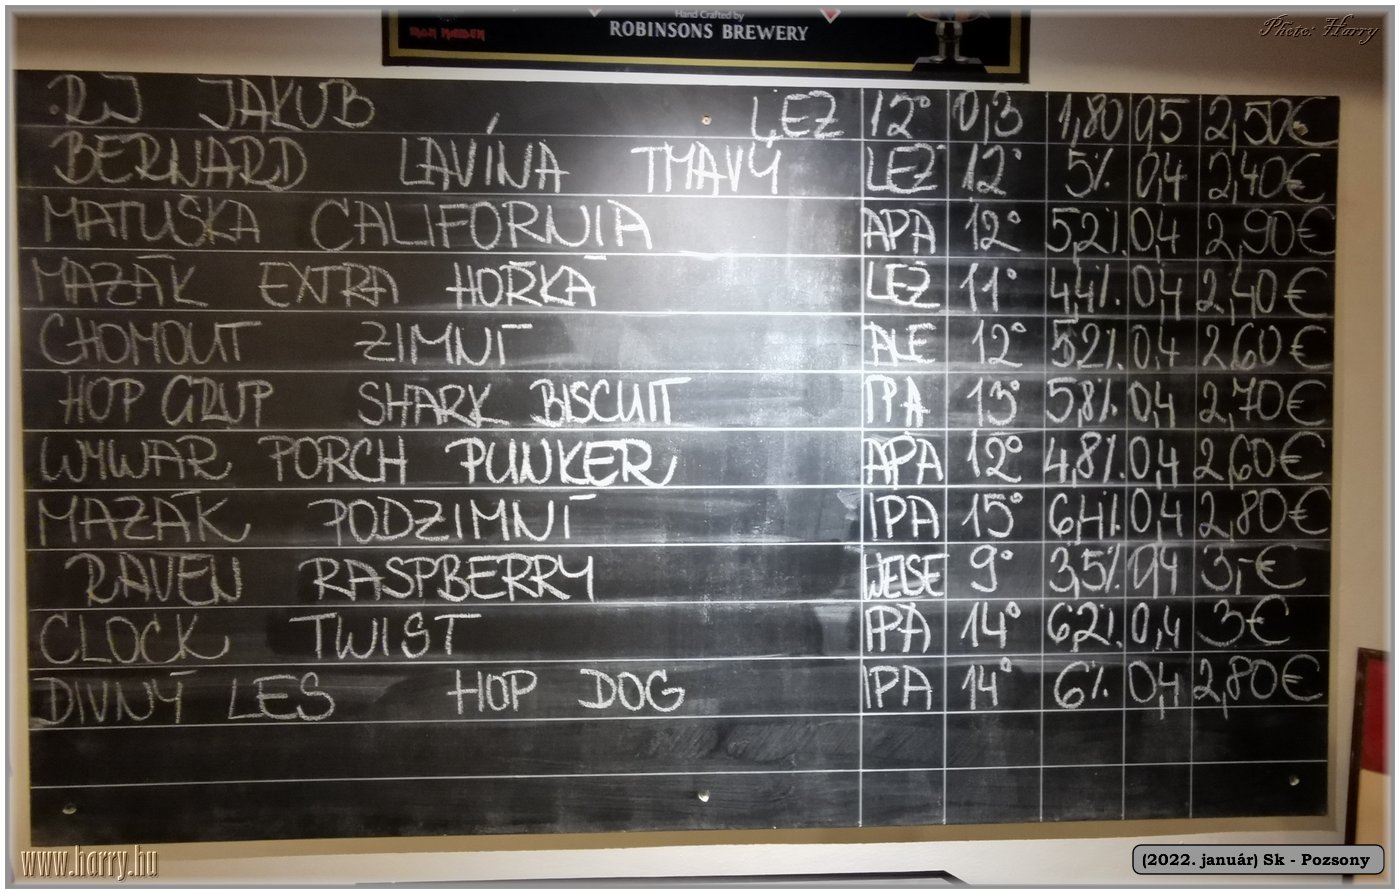 IRON MAIDEN
Hand Crafted by
ROBINSONS BREWERY
Photo: Harry
RJ JAKUB LEŽ 12° 0,3 1,80 0,5 2,50€
BERNARD LAVÍNA TMAVÝ LEŽ 12° 5% 0,4 2,40€
MATUŠKA CALIFORNIA APA 12° 5,2% 0,4 2,90€
MAZÁK EXTRA HOŘKÁ LEŽ 11° 4,4% 0,4 2,40€
CHOMOUT ZIMNÍ ALE 12° 5,2% 0,4 2,60€
HOP GRUP SHARK BISCUIT IPA 13° 5,8% 0,4 2,70€
WYWAR PORCH PUNKER APA 12° 4,8% 0,4 2,60€
MAZÁK PODZIMNÍ IPA 15° 6,4% 0,4 2,80€
RAVEN RASPBERRY WEISE 9° 3,5% 0,4 3,-€
CLOCK TWIST IPA 14° 6,2% 0,4 3€
DIVNÝ LES HOP DOG IPA 14° 6% 0,4 2,80€
www.harry.hu
(2022. január) Sk - Pozsony